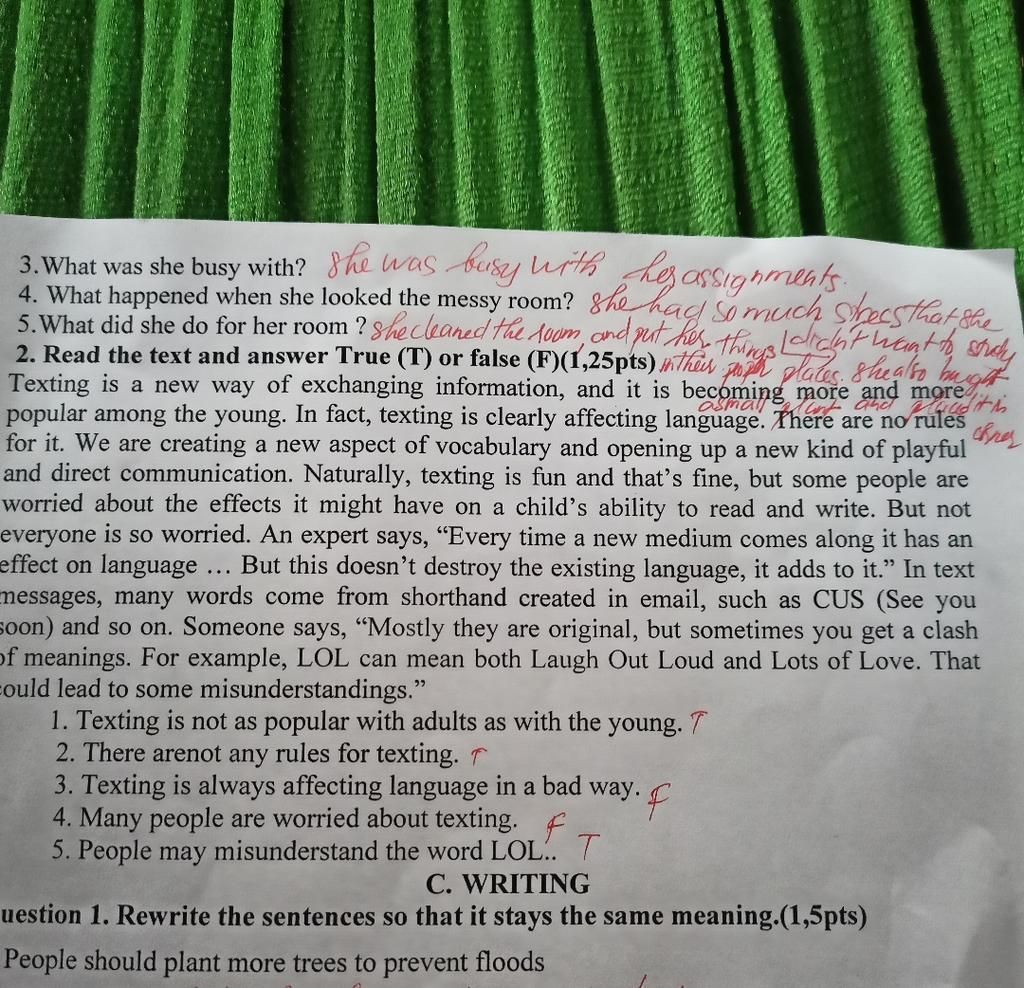 3.What was she busy with? She was busy with her assignments.
4. What happened when she looked the messy room? She had so much stress that she
5.What did she do for her room ? She cleaned the room, and put her things didn't want to study
2. Read the text and answer True (T) or false (F)(1,25pts) in their places. She also bought
Texting is a new way of exchanging information, and it is becoming more and more
a small plant and placed it in
popular among the young. In fact, texting is clearly affecting language. There are no rules
for it. We are creating a new aspect of vocabulary and opening up a new kind of playful
and direct communication. Naturally, texting is fun and that's fine, but some people are
worried about the effects it might have on a child's ability to read and write. But not
everyone is so worried. An expert says, “Every time a new medium comes along it has an
effect on language … But this doesn't destroy the existing language, it adds to it.” In text
messages, many words come from shorthand created in email, such as CUS (See you
soon) and so on. Someone says, “Mostly they are original, but sometimes you get a clash
of meanings. For example, LOL can mean both Laugh Out Loud and Lots of Love. That
could lead to some misunderstandings.”
1. Texting is not as popular with adults as with the young. T
2. There arenot any rules for texting. T
3. Texting is always affecting language in a bad way. F
4. Many people are worried about texting. F
5. People may misunderstand the word LOL.. T
C. WRITING
uestion 1. Rewrite the sentences so that it stays the same meaning.(1,5pts)
People should plant more trees to prevent floods